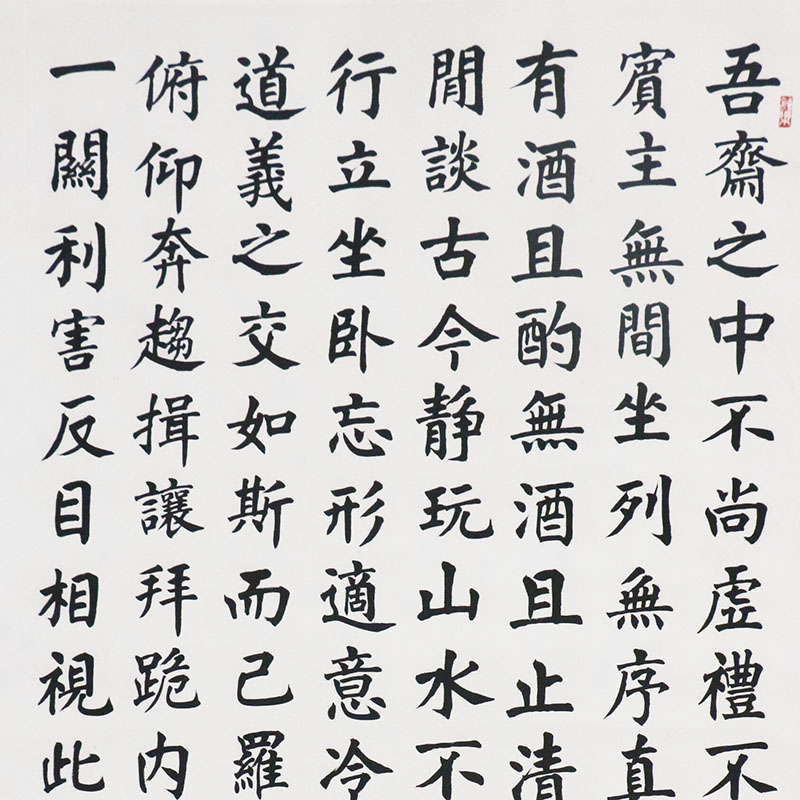 吾齋之中不尚虛禮不
賓主無間坐列無序真
有酒且酌無酒且止清
閒談古今静玩山水不
行立坐卧忘形適意冷
道義之交如斯而已羅
俯仰奔趨揖讓拜跪内
一關利害反目相視此